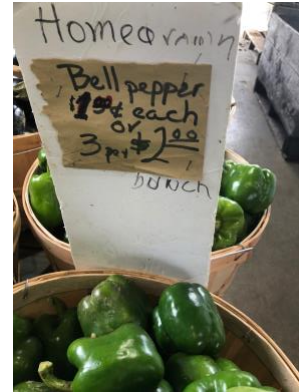 Homegrown
Bell pepper
each
or
3 for $2.00
bunch